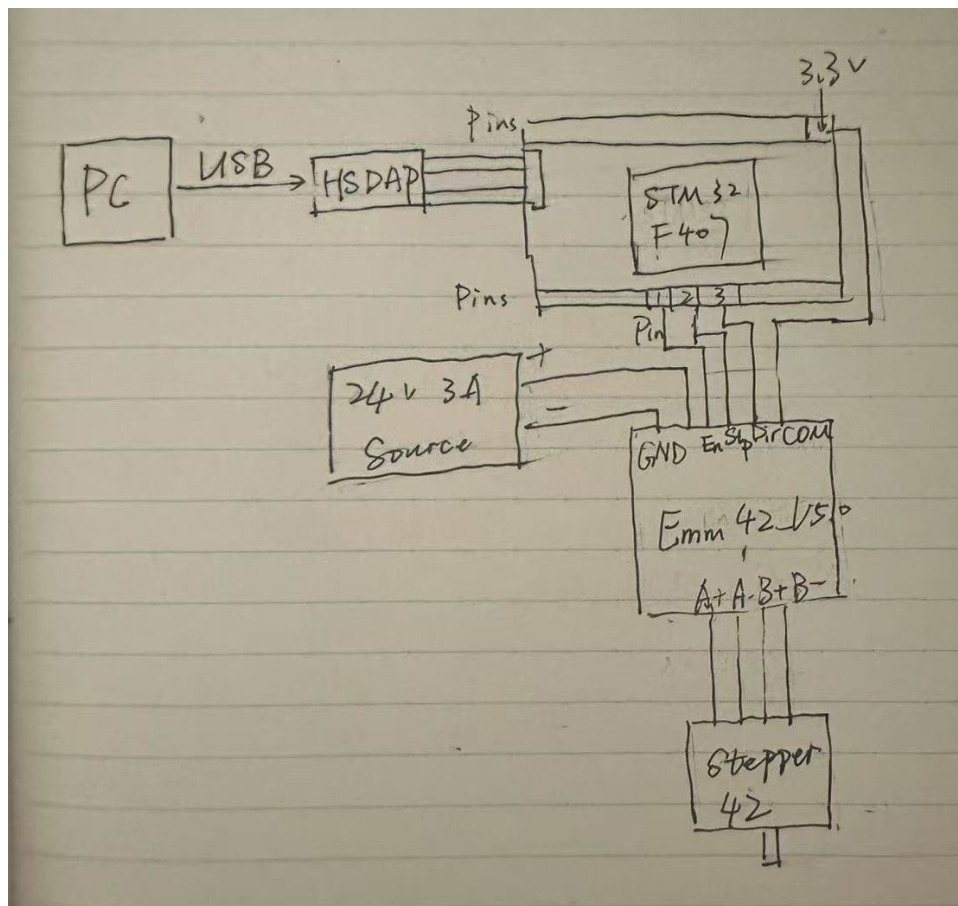 3.3V
Pins
PC
USB
HSDAP
STM32
F407
Pins
1 2 3
Pin
+
24V 3A
Source
-
GND En Stp Dir COM
Emm 42_V5.0
A+ A- B+ B-
Stepper
42